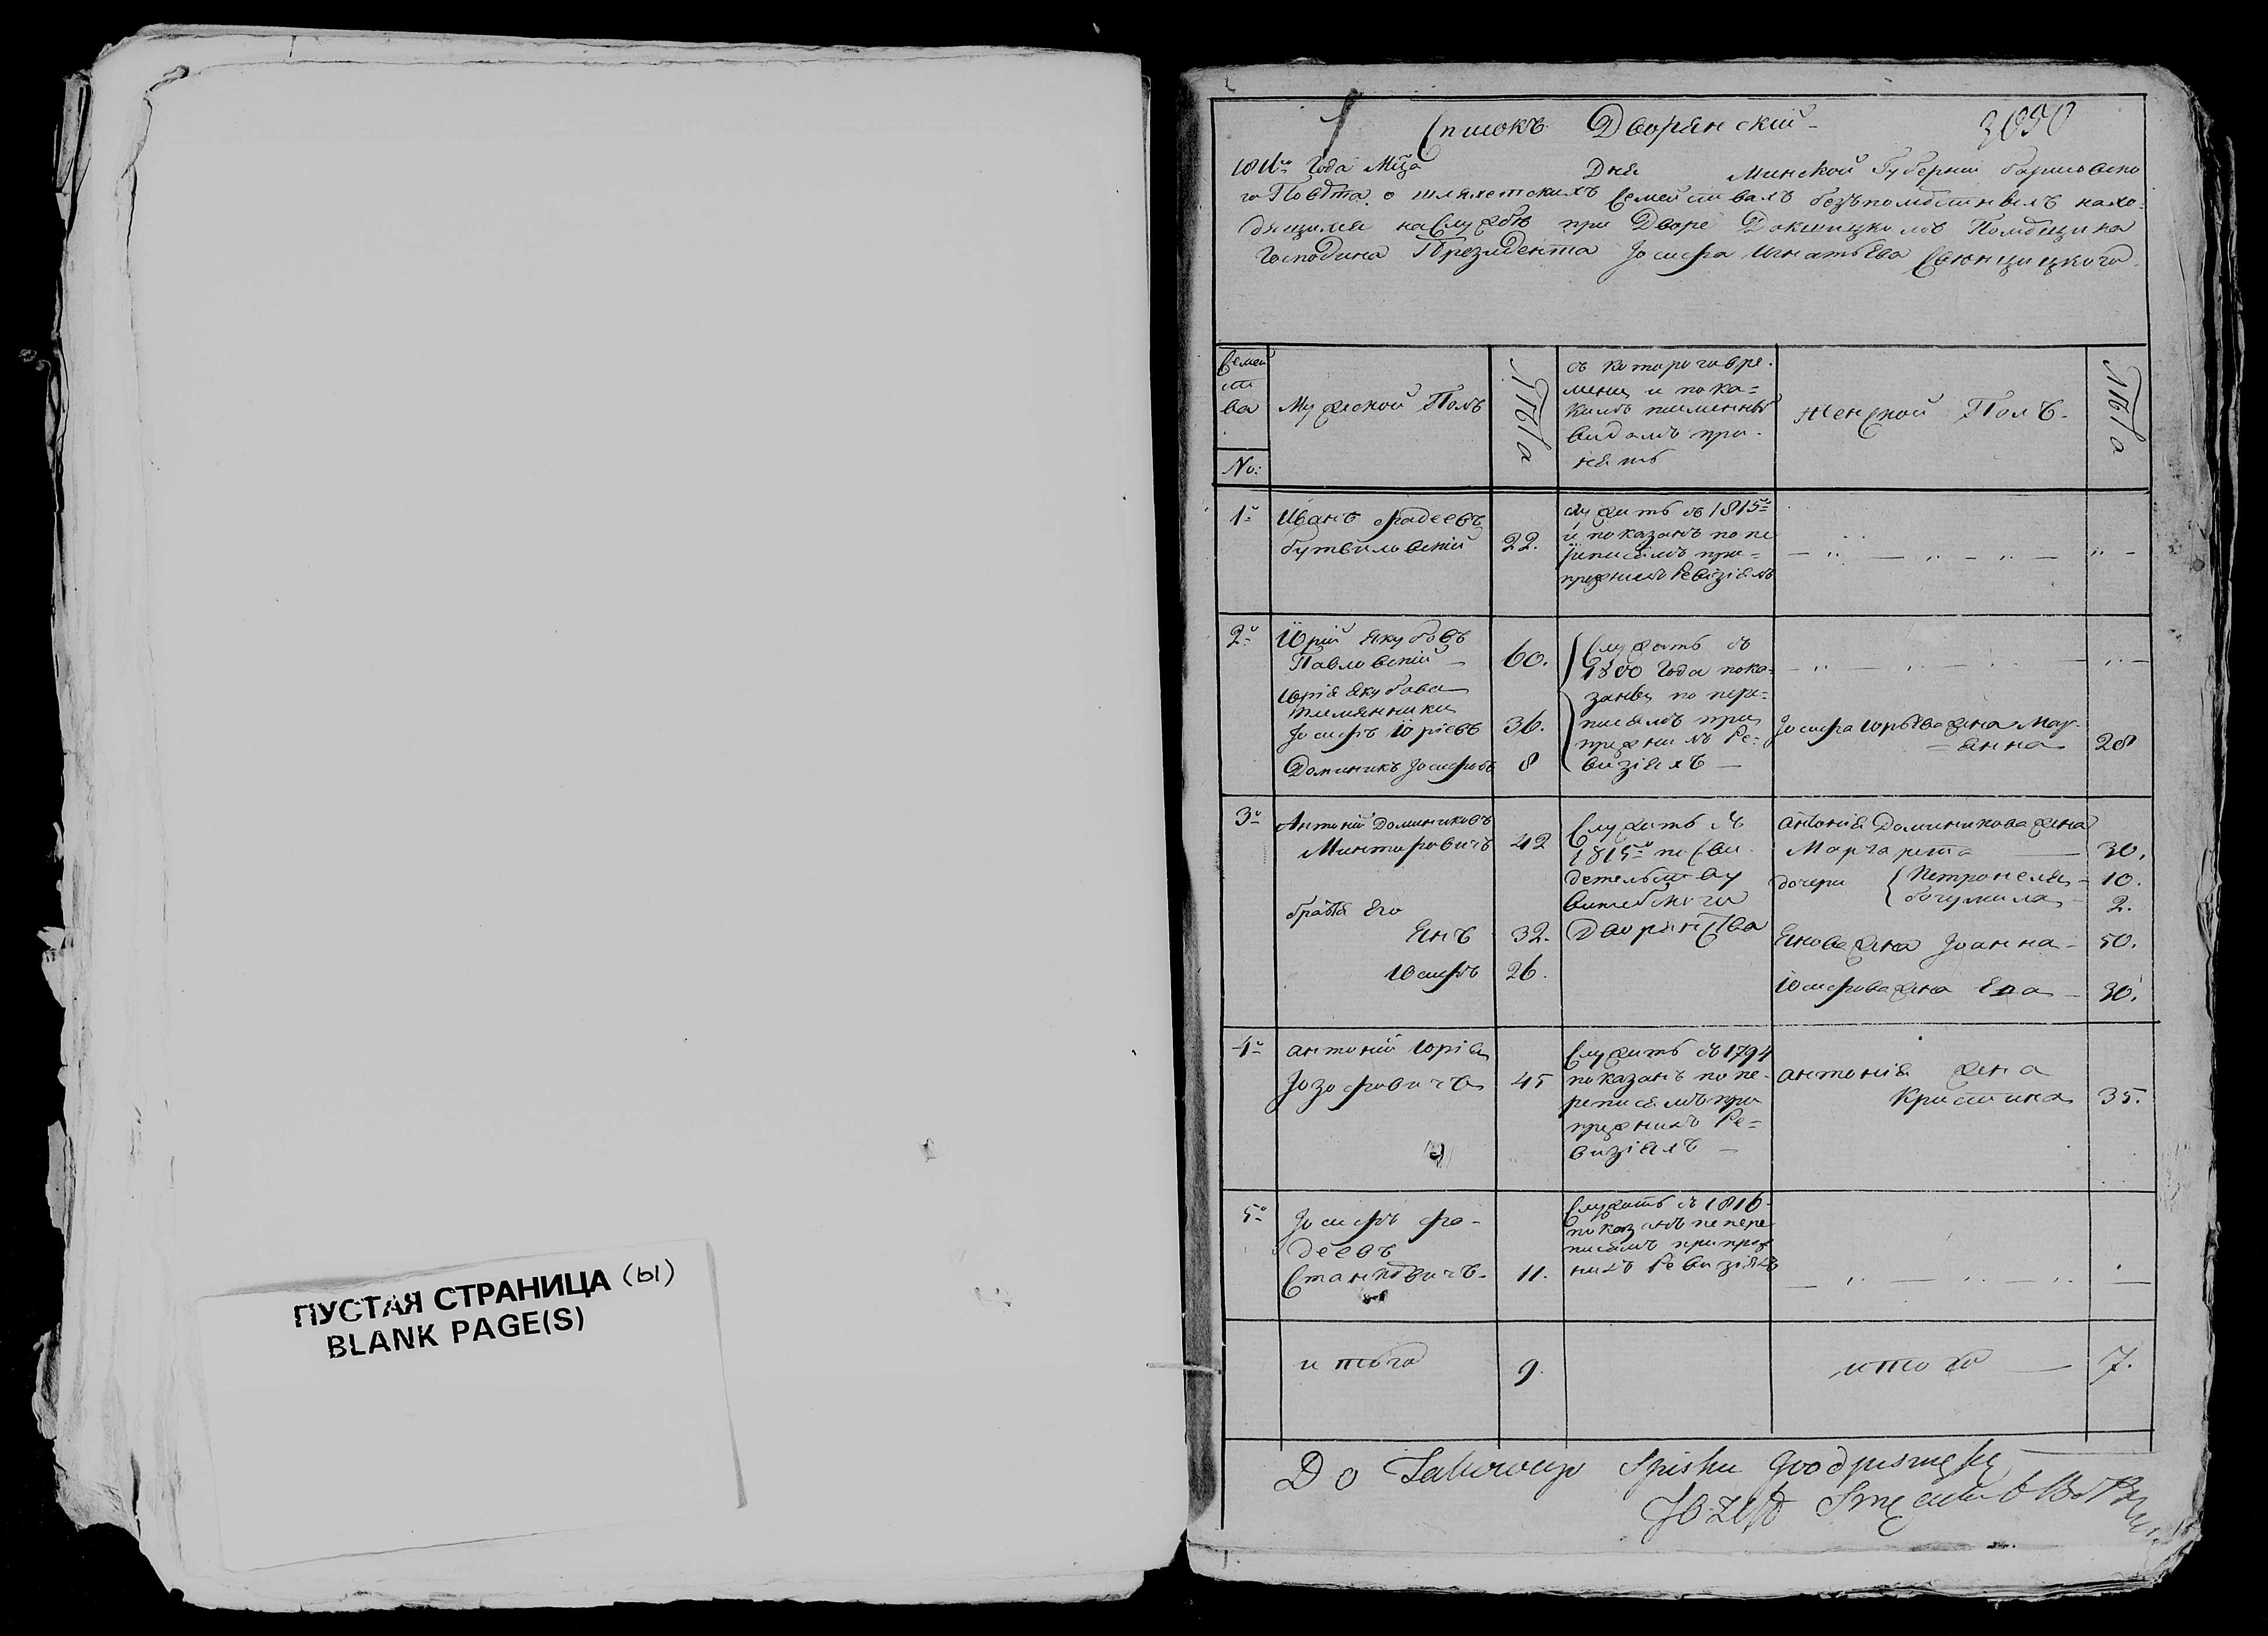 ПУСТАЯ СТРАНИЦА (ы)
BLANK PAGE(S)
Списокъ Дворянскій
3090
Года Мца Дня Минской Губерніи Борисовско
го Повѣта о шляхетскихъ Семействахъ безъпомѣстныхъ нахо-
дящихся на Службѣ при Дворѣ Докшицкомъ Помѣщика
Господина Президента Іосифа Игнатьева Свенцицкого
Семей
ст
ва
No:
Мужеской Полъ
Лѣта
съ которого вре-
мени и по ка-
кимъ писменнымъ
видамъ при-
нятъ
Женской Полъ
Лѣта
1й
Иванъ Фадеевъ
Бутвиловскій
22.
служитъ съ 1815го
и показанъ по пе
реписямъ при
прежнихъ Ревизіяхъ
2й
Юрій Якубовъ
Павловскій
60.
Юрія Якубова
племянники
Іосифъ Юріевъ
36.
Доминикъ Іосифовъ
8
Служатъ съ
1800 Года пока-
заны по пере-
писямъ при
прежнихъ Ре-
визіяхъ
Іосифа Юрьева жена Мар-
=анна
28
3й
Антоній Доминиковъ
Минтировичъ
42
братья Его
Янъ
32.
Юсифъ
26.
Служитъ съ
1815го по Сви
детельству
витебского
Дворянства
Антонія Доминикова жена
Маргарета
30.
дочери
Петронеля
10.
богумила
2.
Янова жена Іоанна
50.
Юсифова жена Ева
30.
4й
Антоній Юріев
Іозофовичъ
45
Служитъ съ 1794
показанъ по пе-
реписямъ при
прежнихъ Ре-
визіяхъ
Антонія жена
Кристина
35.
5й
Іосифъ Фа-
деевъ
Станкевичъ
11.
Служитъ съ 1816
показанъ по пере
писямъ при преж
нихъ Ревизіяхъ
итого
9.
итого
7.
Do Takowego Spisku podpisuję się
Józeff